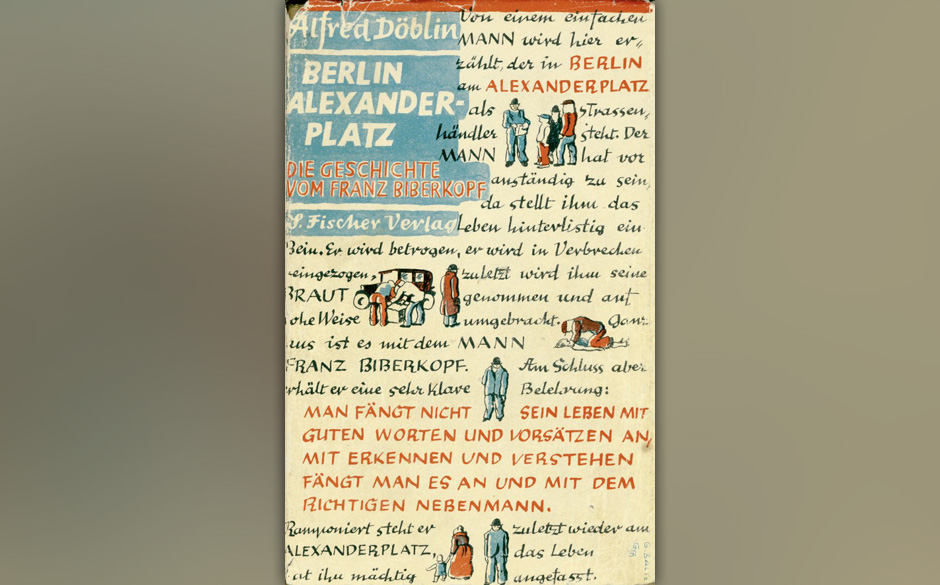 Alfred Döblin
BERLIN
ALEXANDER-
PLATZ
DIE GESCHICHTE
VOM FRANZ BIBERKOPF
S. Fischer Verlag
Von einem einfachen
MANN wird hier er-
zählt, der in BERLIN
am ALEXANDERPLATZ
als Strassen-
händler steht. Der
MANN hat vor
anständig zu sein,
da stellt ihm das
Leben hinterlistig ein
Bein. Er wird betrogen, er wird in Verbrechen
eingezogen, zuletzt wird ihm seine
BRAUT genommen und auf
rohe Weise umgebracht. Ganz
aus ist es mit dem MANN
FRANZ BIBERKOPF. Am Schluss aber
erhält er eine sehr klare Belehrung:
MAN FÄNGT NICHT SEIN LEBEN MIT
GUTEN WORTEN UND VORSÄTZEN AN,
MIT ERKENNEN UND VERSTEHEN
FÄNGT MAN ES AN UND MIT DEM
RICHTIGEN NEBENMANN.
Ramponiert steht er zuletzt wieder am
ALEXANDERPLATZ, das Leben
hat ihn mächtig angefasst.